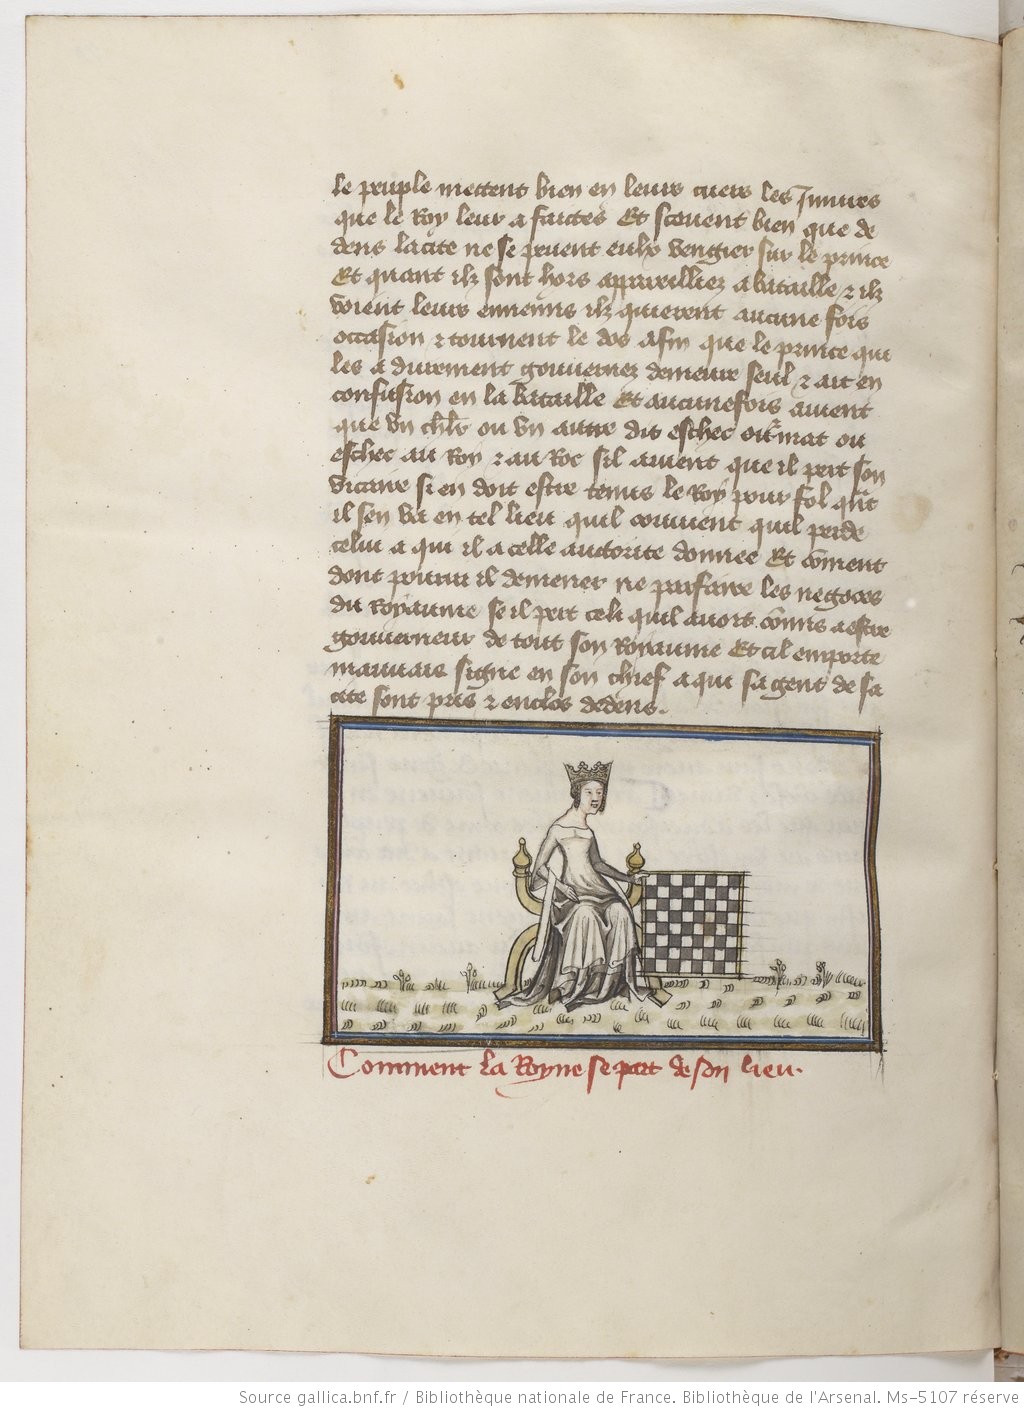 le peuple mettent bien en leurs cuers les Iniures
que le Roy leur a faictes Et scevent bien que de
dens lacite ne se pevent eulx vengier sur le prince
Et quant ilz sont hors appareilliez a bataille & ilz
voient leurs ennemis ilz quierent aucune fois
occasion & tournent le dos afin que le prince qui
les a durement gouvernez demeure seul & ait en
confusion en la bataille Et aucunefois avient
que un chlr ou un autre dit eschec mat ou
eschec au Roy & au Roc sil avient que il pert son
vicaire si en doit estre tenus le Roy pour fol qnt
il sen va en tel lieu quil convient quil perde
celui a qui il a celle auctorite donnee Et coment
dont pourra il demener ne parfaire les negoces
du Royaume se il pert celi quil avoit comis a estre
gouverneur de tout son Royaume Et cil emporte
mauvais signe en son chief a qui sa gent de sa
cite sont pris & enclos dedens.
Comment la Royne se part de son lieu.
Source gallica.bnf.fr / Bibliothèque nationale de France. Bibliothèque de l'Arsenal. Ms-5107 réserve